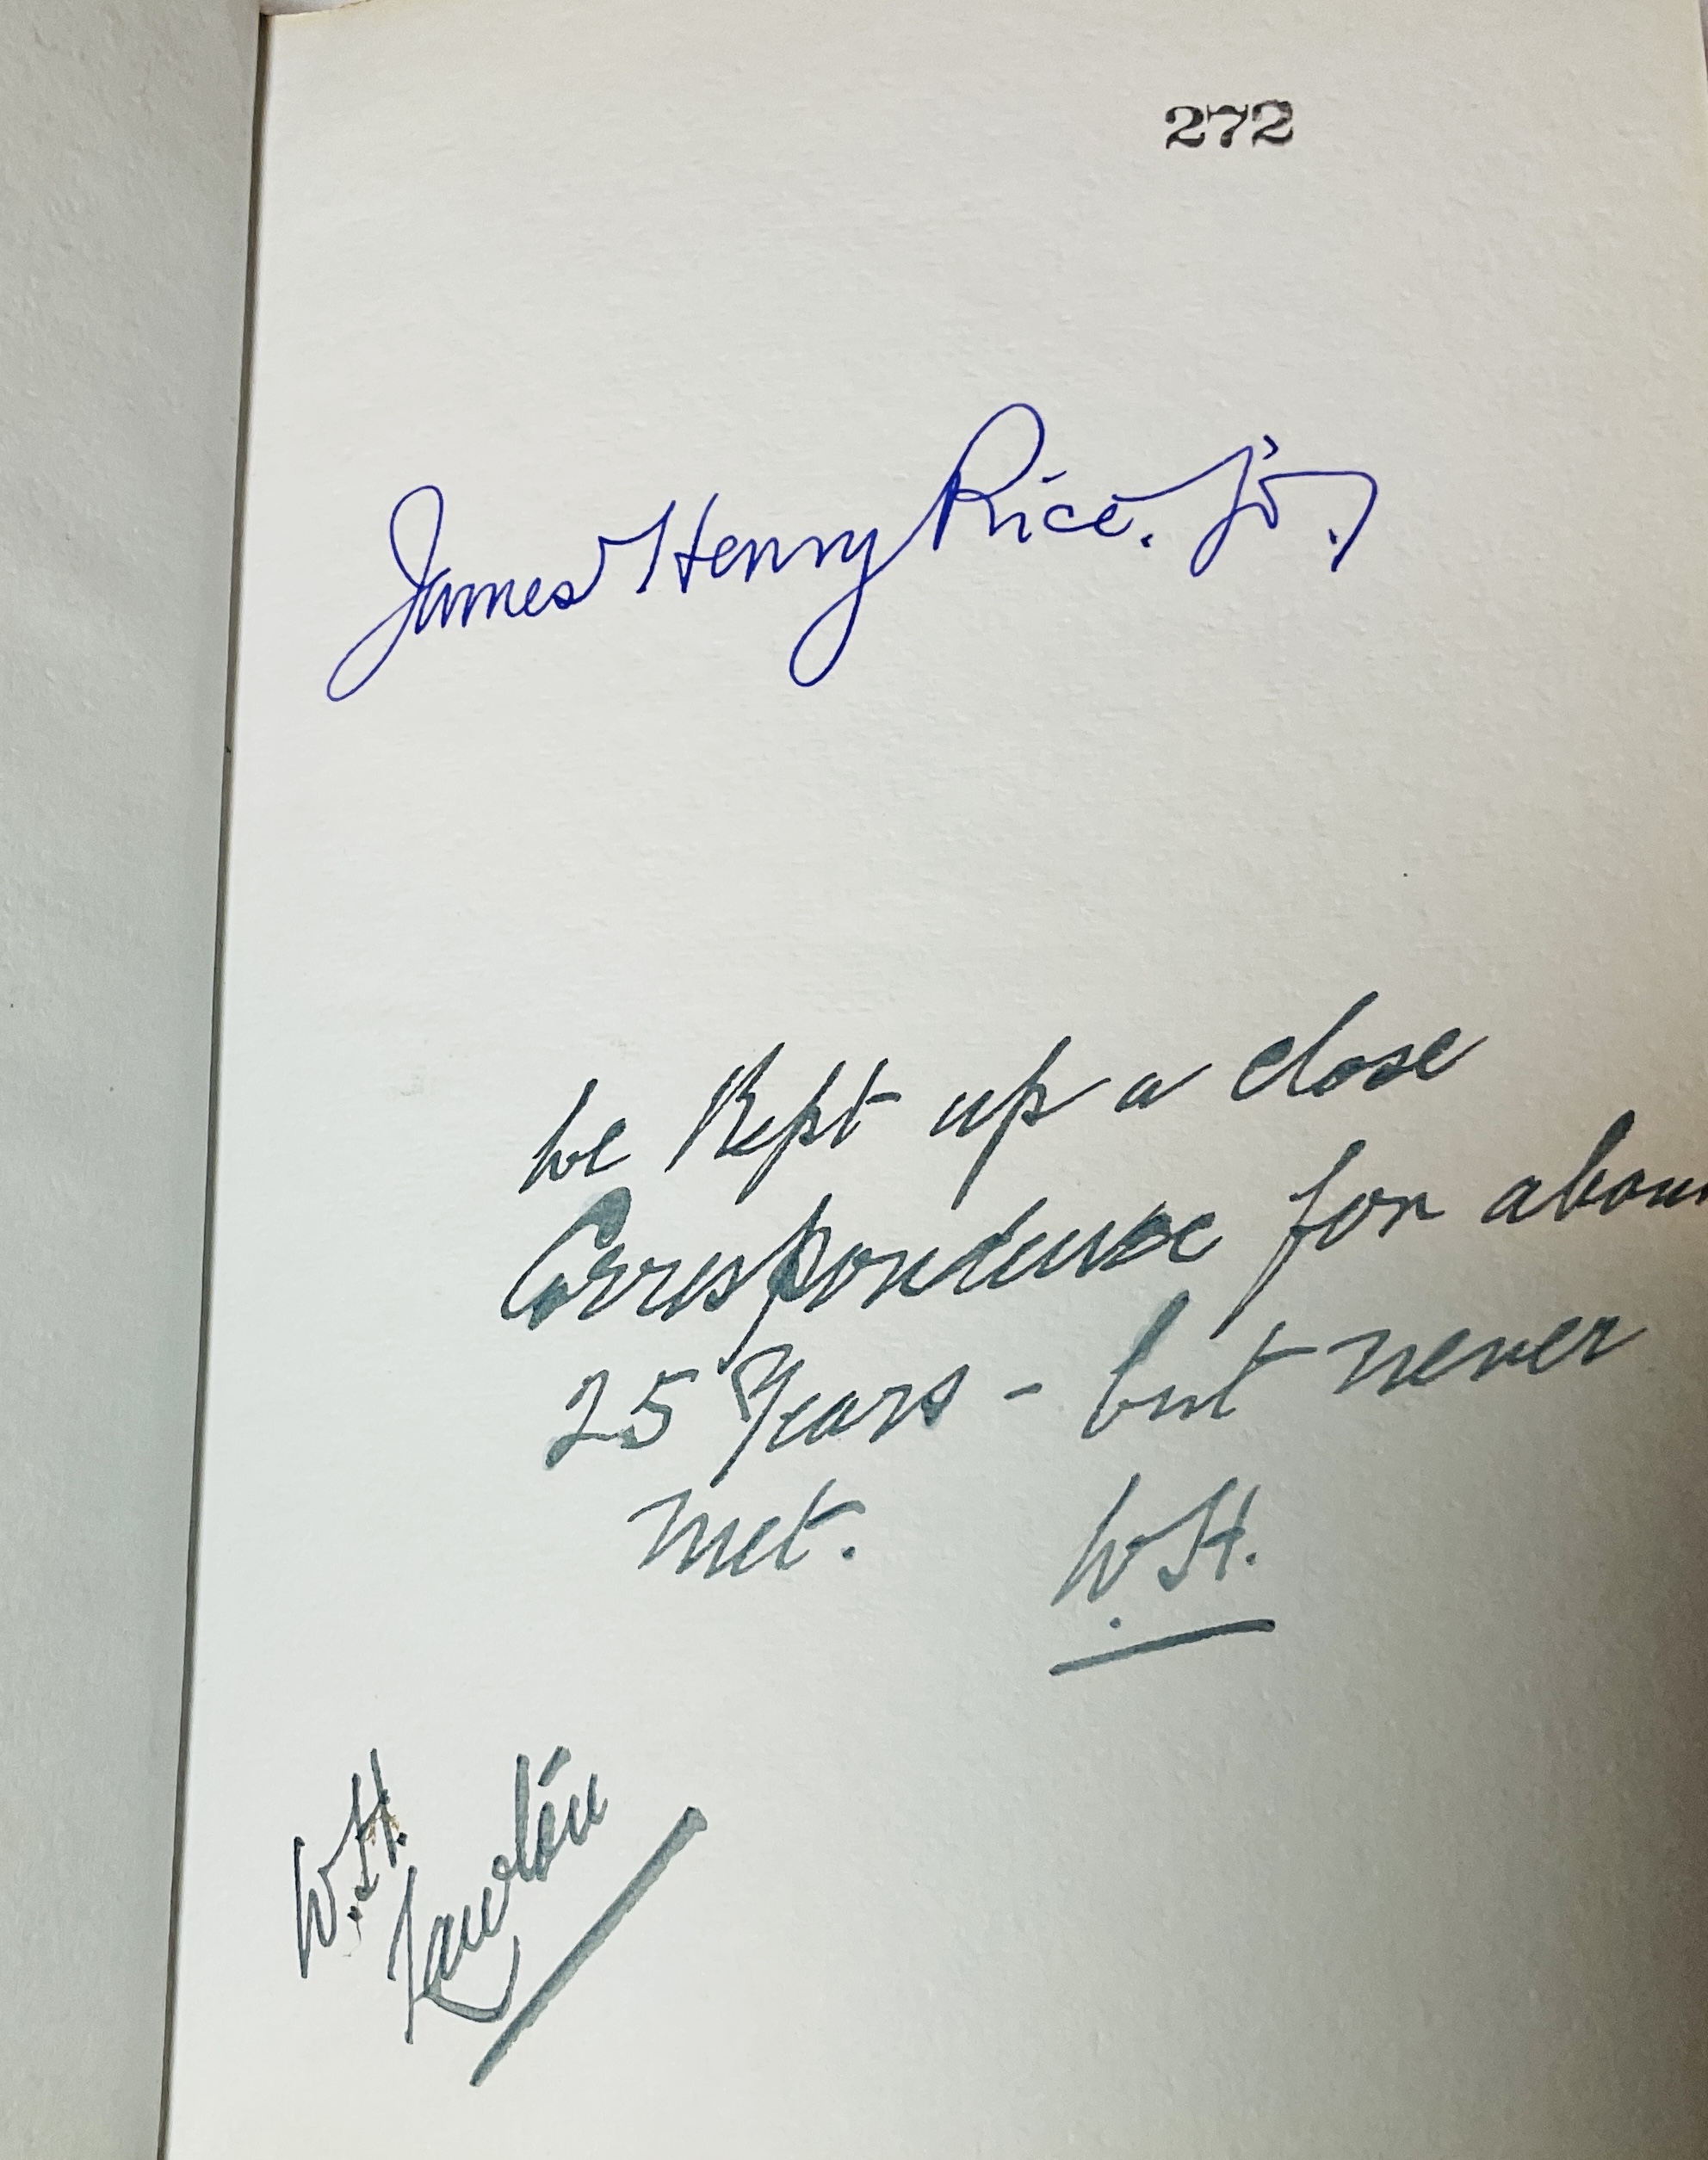 272
James Henry Rice. Jr.,
We Kept up a close
Correspondence for about
25 Years - but never
met. W.H.
W.H.
Lawton